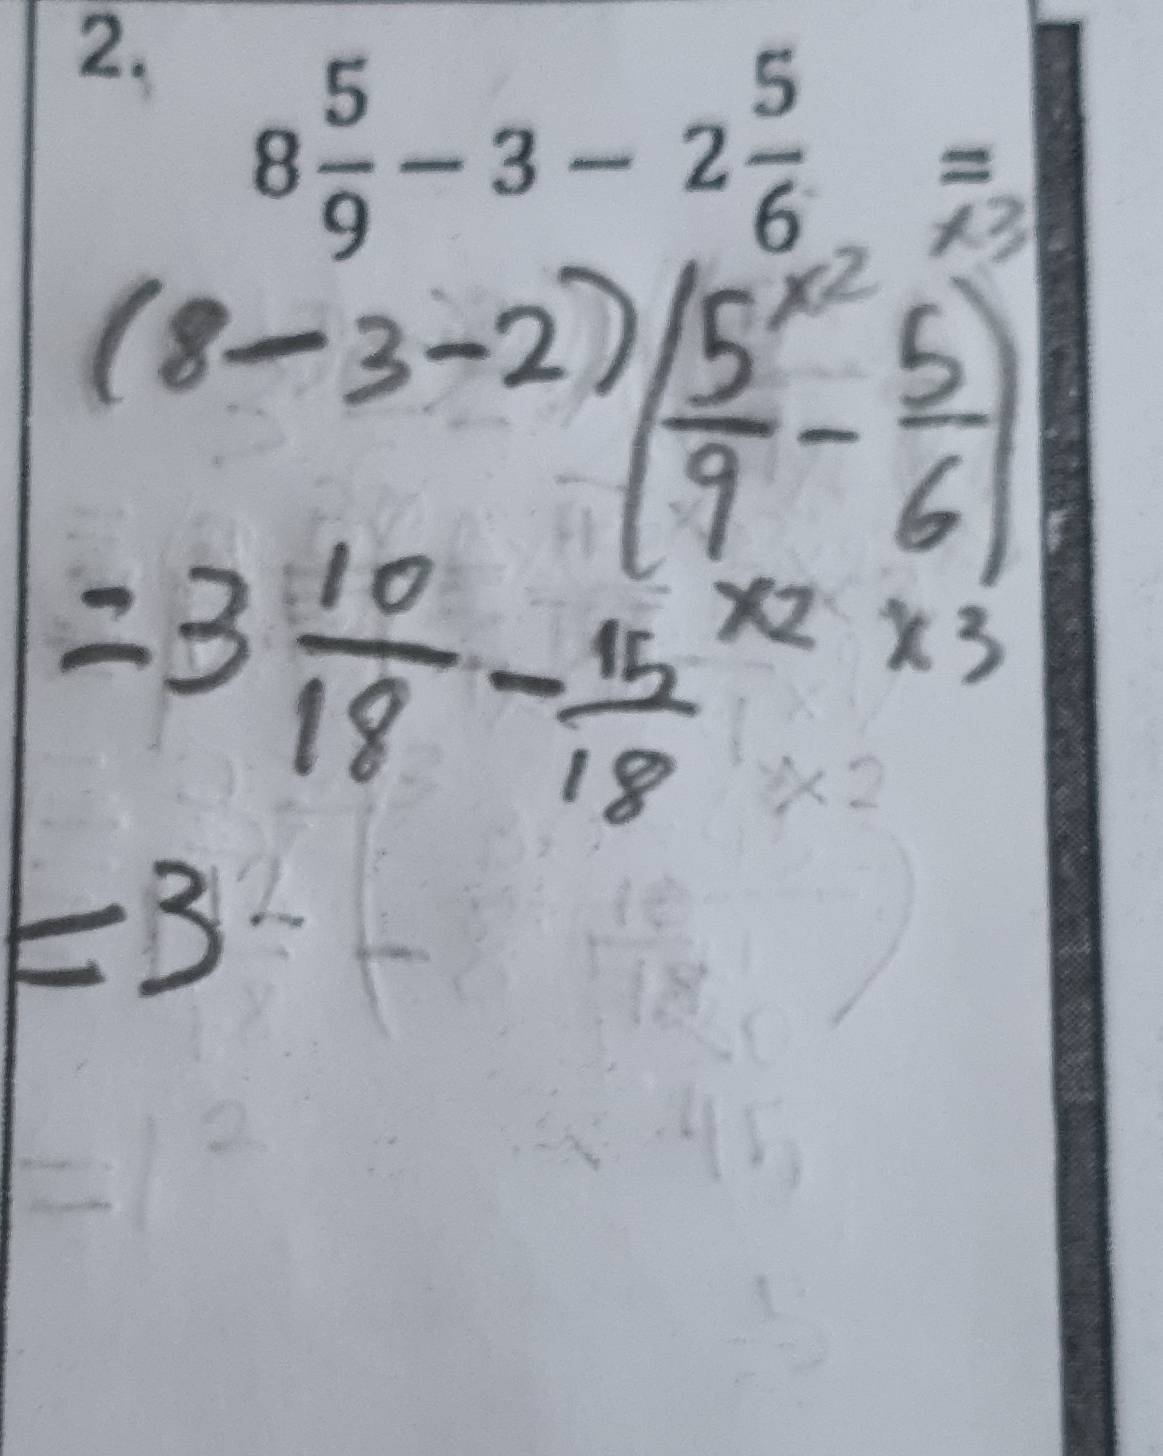 2.
8 5/9 − 3 − 2 5/6 =
×2 ×3
(8 − 3 − 2) (5/9 − 5/6)
×2 ×3
= 3 10/18 − 15/18
×2
= 3